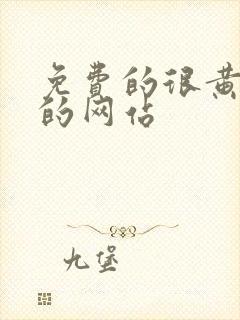 免費的很黄
的网佔
九堡